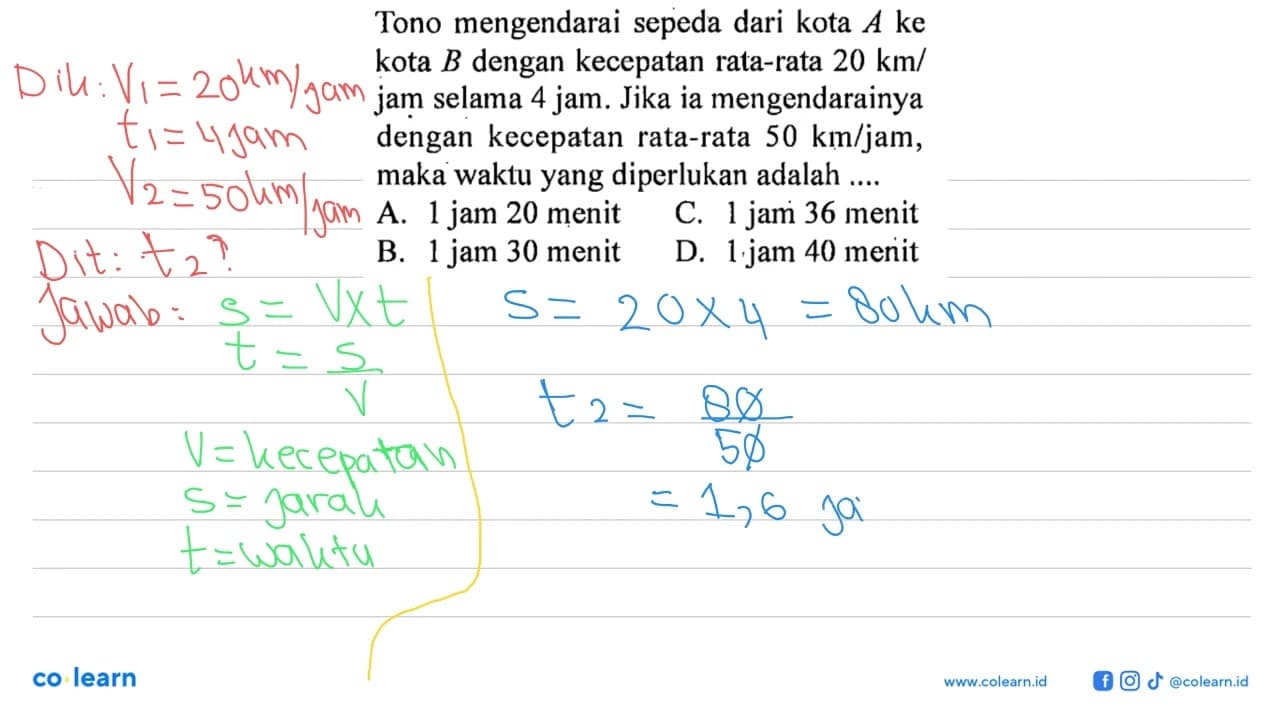 Tono mengendarai sepeda dari kota A ke
kota B dengan kecepatan rata-rata 20 km/
jam selama 4 jam. Jika ia mengendarainya
dengan kecepatan rata-rata 50 km/jam,
maka waktu yang diperlukan adalah ....
A. 1 jam 20 menit C. 1 jam 36 menit
B. 1 jam 30 menit D. 1 jam 40 menit
Dik: V1 = 20 km/jam
t1 = 4 jam
V2 = 50 km/jam
Dit: t2?
Jawab: s = V x t
t = s/V
V = kecepatan
s = jarak
t = waktu
S = 20 x 4 = 80 km
t2 = 80/50
= 1,6 ja
co learn
www.colearn.id @colearn.id